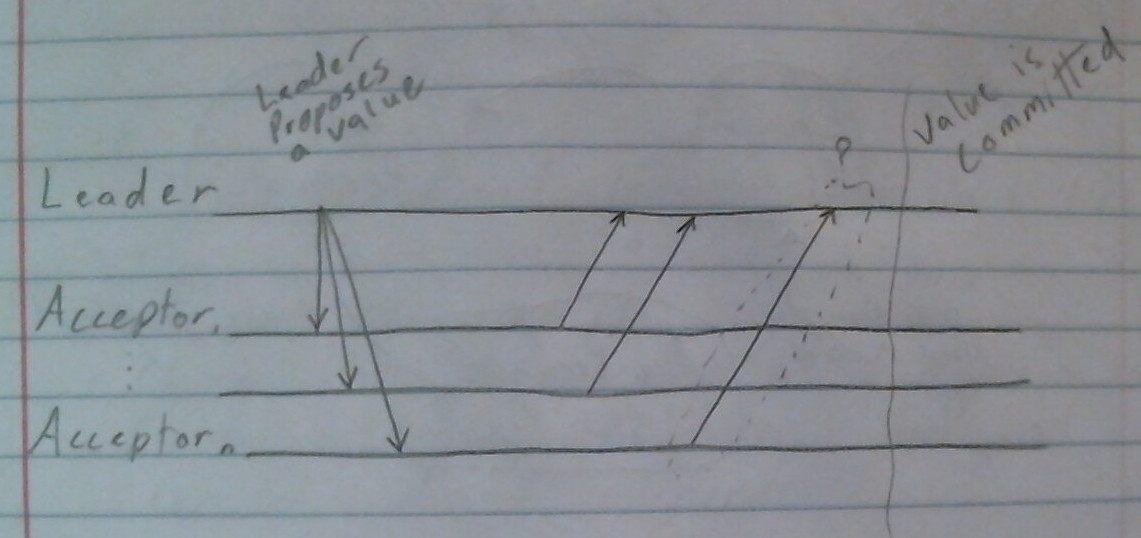 Leader
Proposes
a value
?
Value is
Committed
Leader
Acceptor₁
⋮
Acceptorₙ